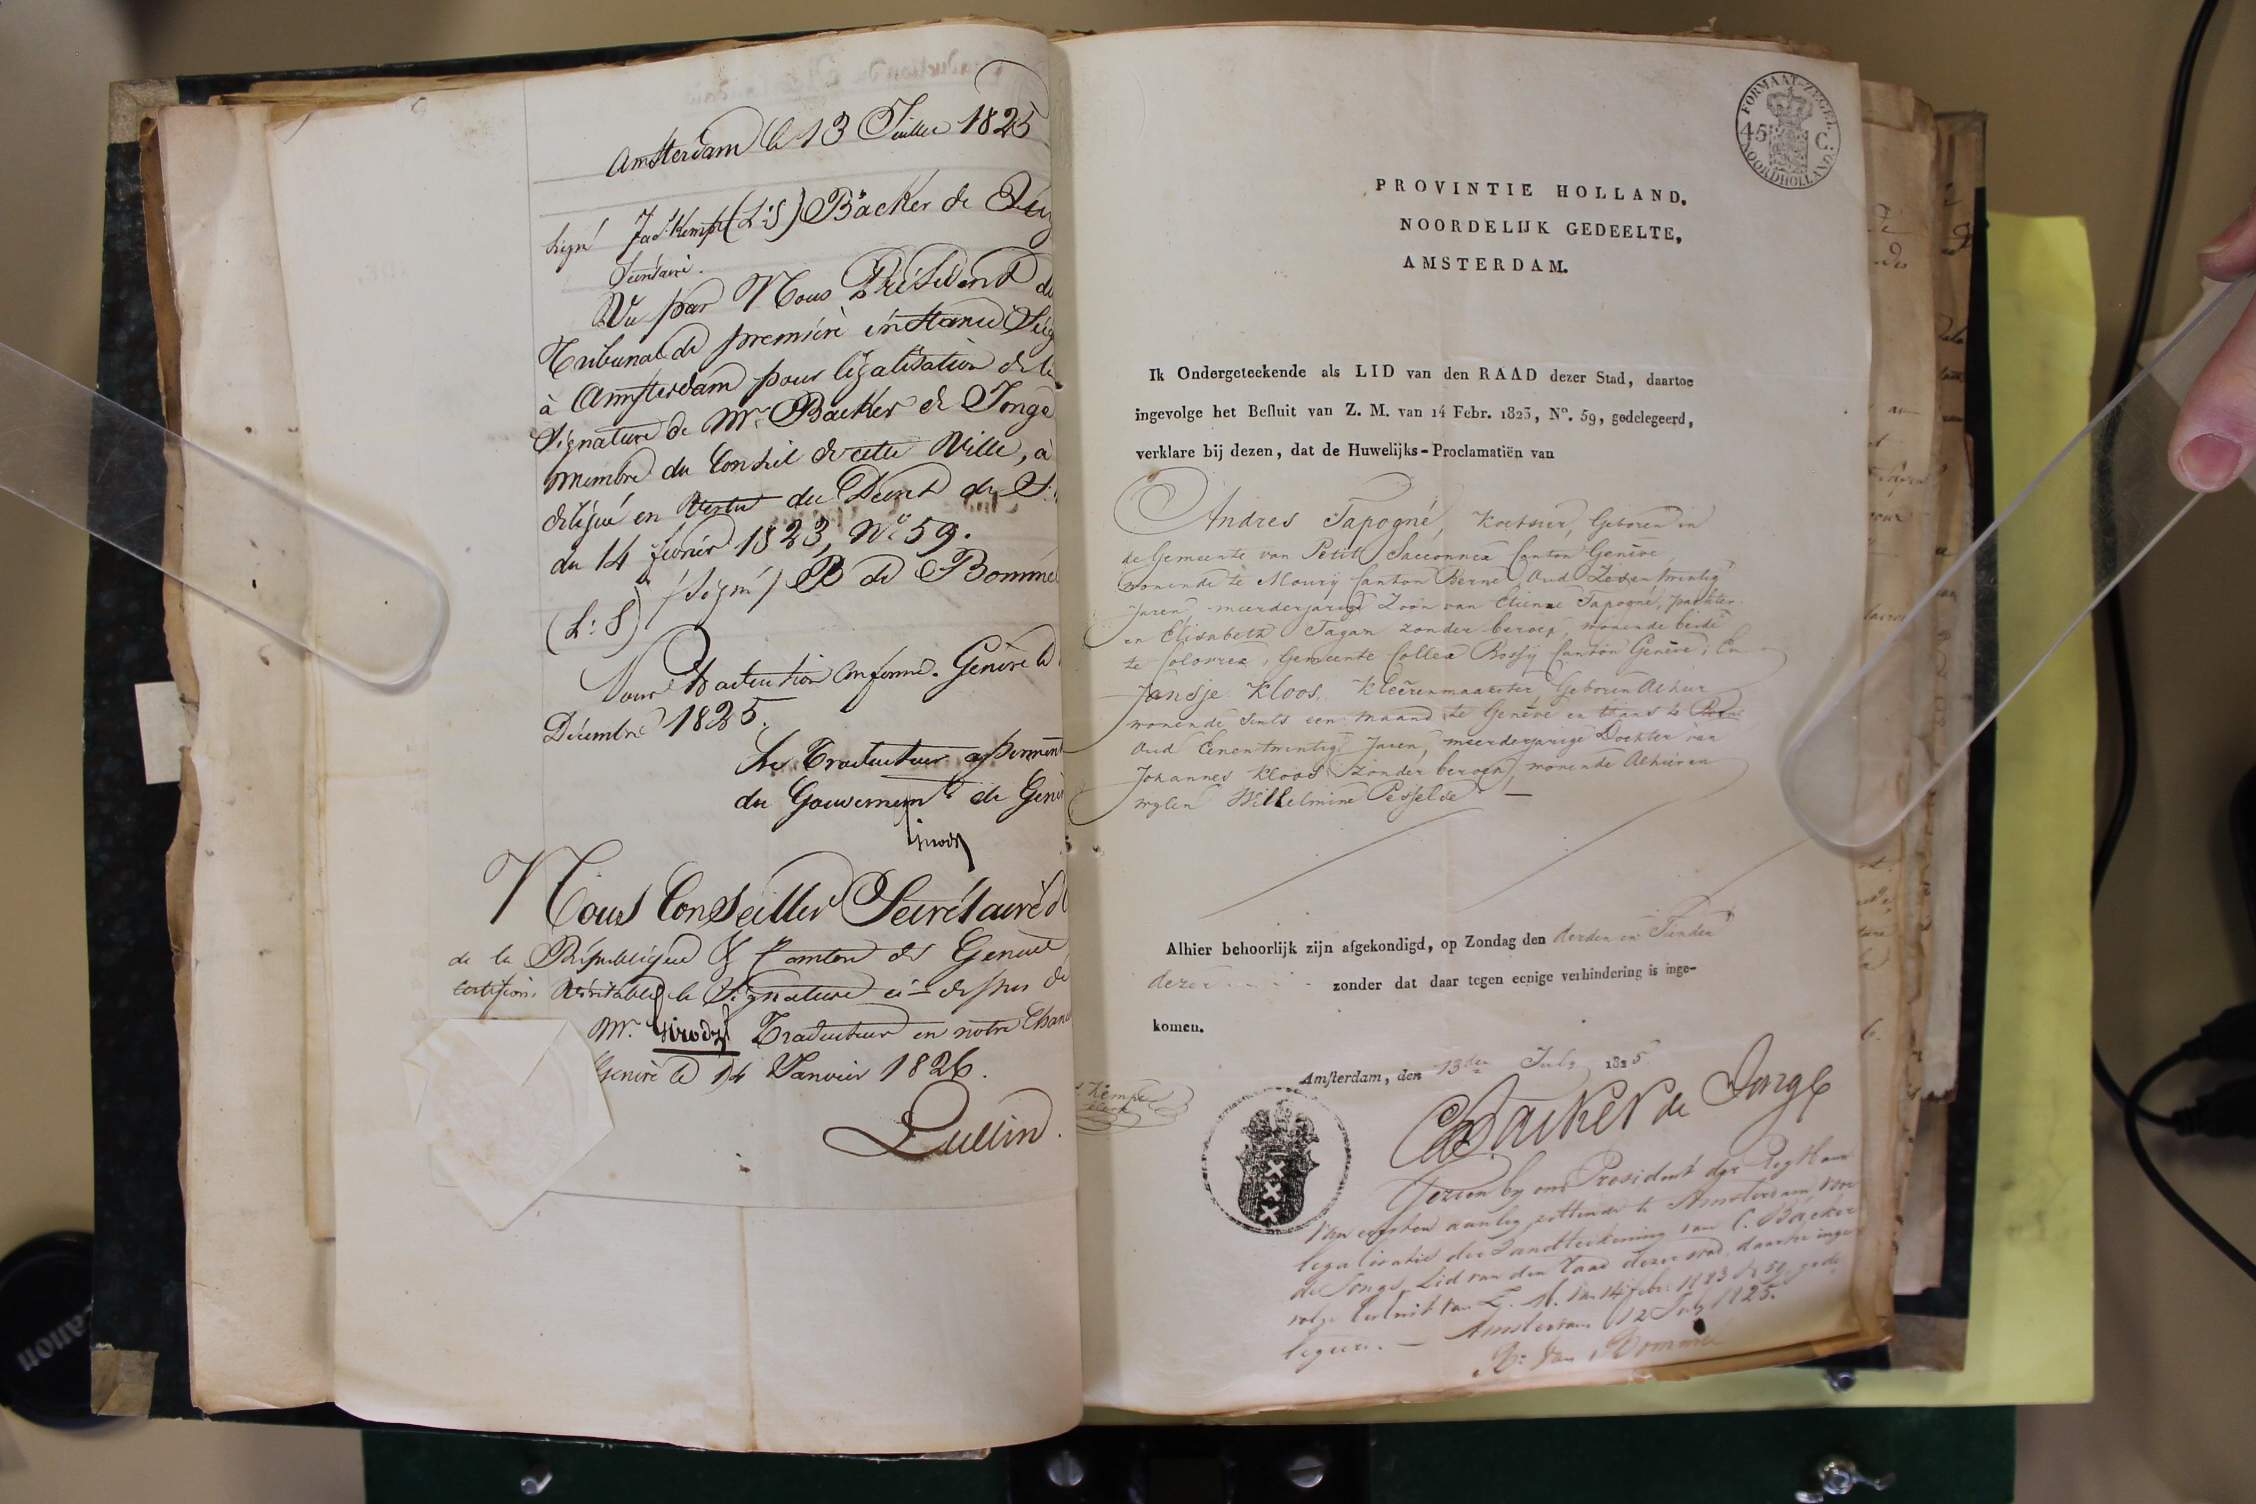 Amsterdam le 13 Juillet 1825
signé Jac. Kempe (L:S) Backer de
Secrétaire.
Vu par Nous Président du
Tribunal de première instance
à Amsterdam pour légalisation de la
Signature de Mr. Backer de Jonge
membre du Conseil de cette Ville, à
délégué en vertu du Décret de
du 14 février 1823, No. 59.
(L:S) (signé) B de Bommel
Pour traduction conforme. Genève le
Décembre 1825.
Le Traducteur
du Gouvernemt. de
Nous Conseiller Secrétaire d
de la République & Canton de Genève
certifions véritable la Signature ci-dessus de
Mr. Traducteur en notre
Genève le 14 Janvier 1826.
Lullin.
FORMAAT-ZEGEL
45 C.
NOORDHOLLAND.
PROVINTIE HOLLAND.
NOORDELIJK GEDEELTE,
AMSTERDAM.
Ik Ondergeteekende als LID van den RAAD dezer Stad, daartoe
ingevolge het Besluit van Z. M. van 14 Febr. 1823, No. 59, gedelegeerd,
verklare bij dezen, dat de Huwelijks-Proclamatiën van
Andres Tapogné, Koetsier, Geboren in
de Gemeente van Petit Sacconnex Canton Genève,
wonende te Canton Berne, Oud Zevenentwintig
Jaren, meerderjarige Zoon van Etienne Tapogné,
en Elisabeth zonder beroep, wonende beide
te Gemeente Collex Bossy Canton Genève, En
Jansje Kloos, Geboren Alhier
wonende sints een maand te Genève en thans te
Oud Eenentwintig Jaren, meerderjarige Dochter van
Johannes Kloos zonder beroep, wonende Alhier en
wylen Wilhelmine
Alhier behoorlijk zijn afgekondigd, op Zondag den derden en Tienden
dezer - - - - zonder dat daar tegen eenige verhindering is inge-
komen.
Amsterdam, den 13den July 1825
Backer de Jonge
Kempe
Gezien by ons President der Regtbank
van eersten aanleg zittende te Amsterdam voor
legalisatie der Handteekening van C. Backer
de Jonge Lid van den Raad dezer stad, daartoe inge-
volge besluit van Z. M. van 14 febr. 1823 No 59 gede-
legeerd. — Amsterdam 12 July 1825.
van Bommel
Canon